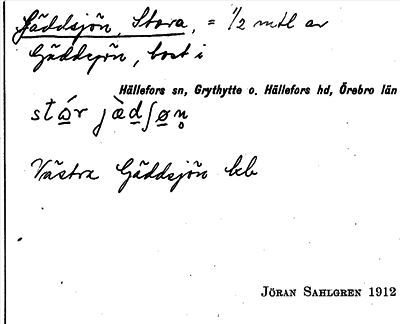 Gäddsjön, Stora, = 1/2 mtl av
Gäddsjön, bort i
Hällefors sn, Grythytte o. Hällefors hd, Örebro län
Västra Gäddsjön kb
JÖRAN SAHLGREN 1912